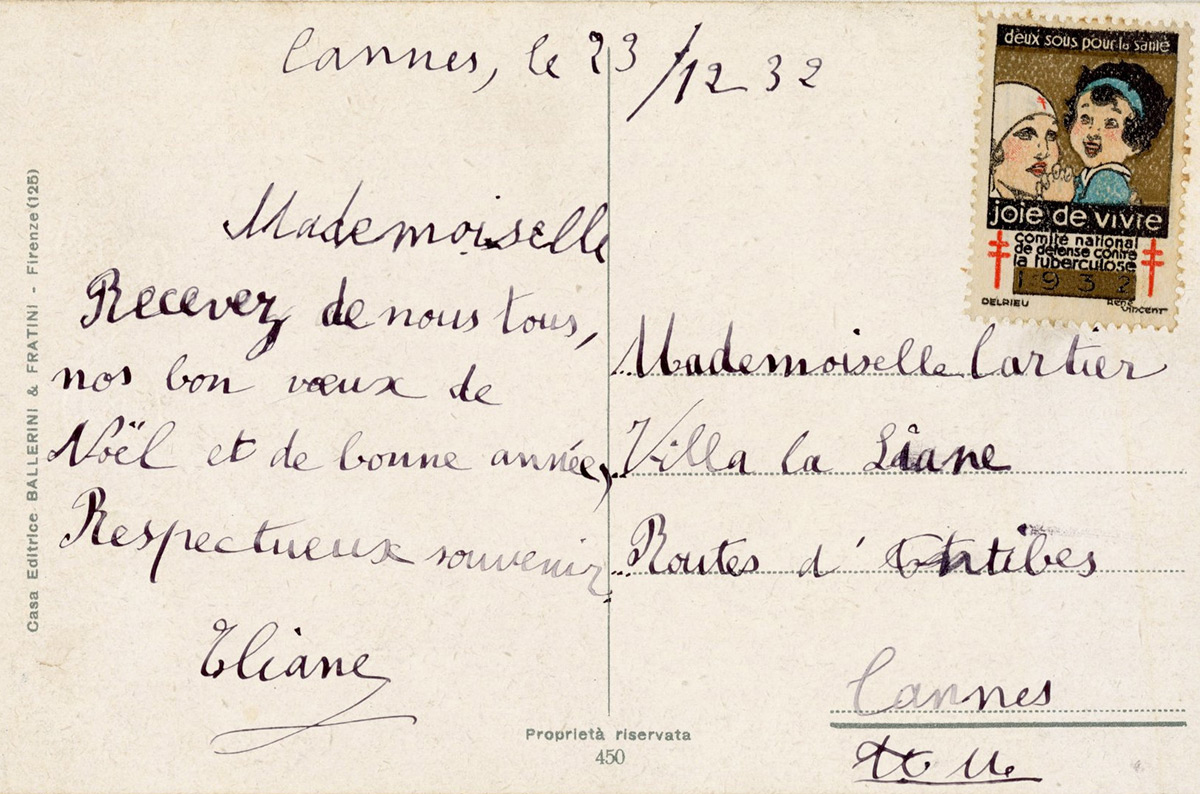 Cannes, le 23/12 32
Mademoiselle
Recevez de nous tous,
nos bon vœux de
Noël et de bonne année,
Respectueux souvenir
Eliane
Mademoiselle Cartier
Villa la Liane
Routes d' Antibes
Cannes
deux sous pour la santé
joie de vivre
comité national
de défense contre
la tuberculose
1932
DELRIEU
René
Vincent
Casa Editrice BALLERINI & FRATINI - Firenze (125)
Proprietà riservata
450